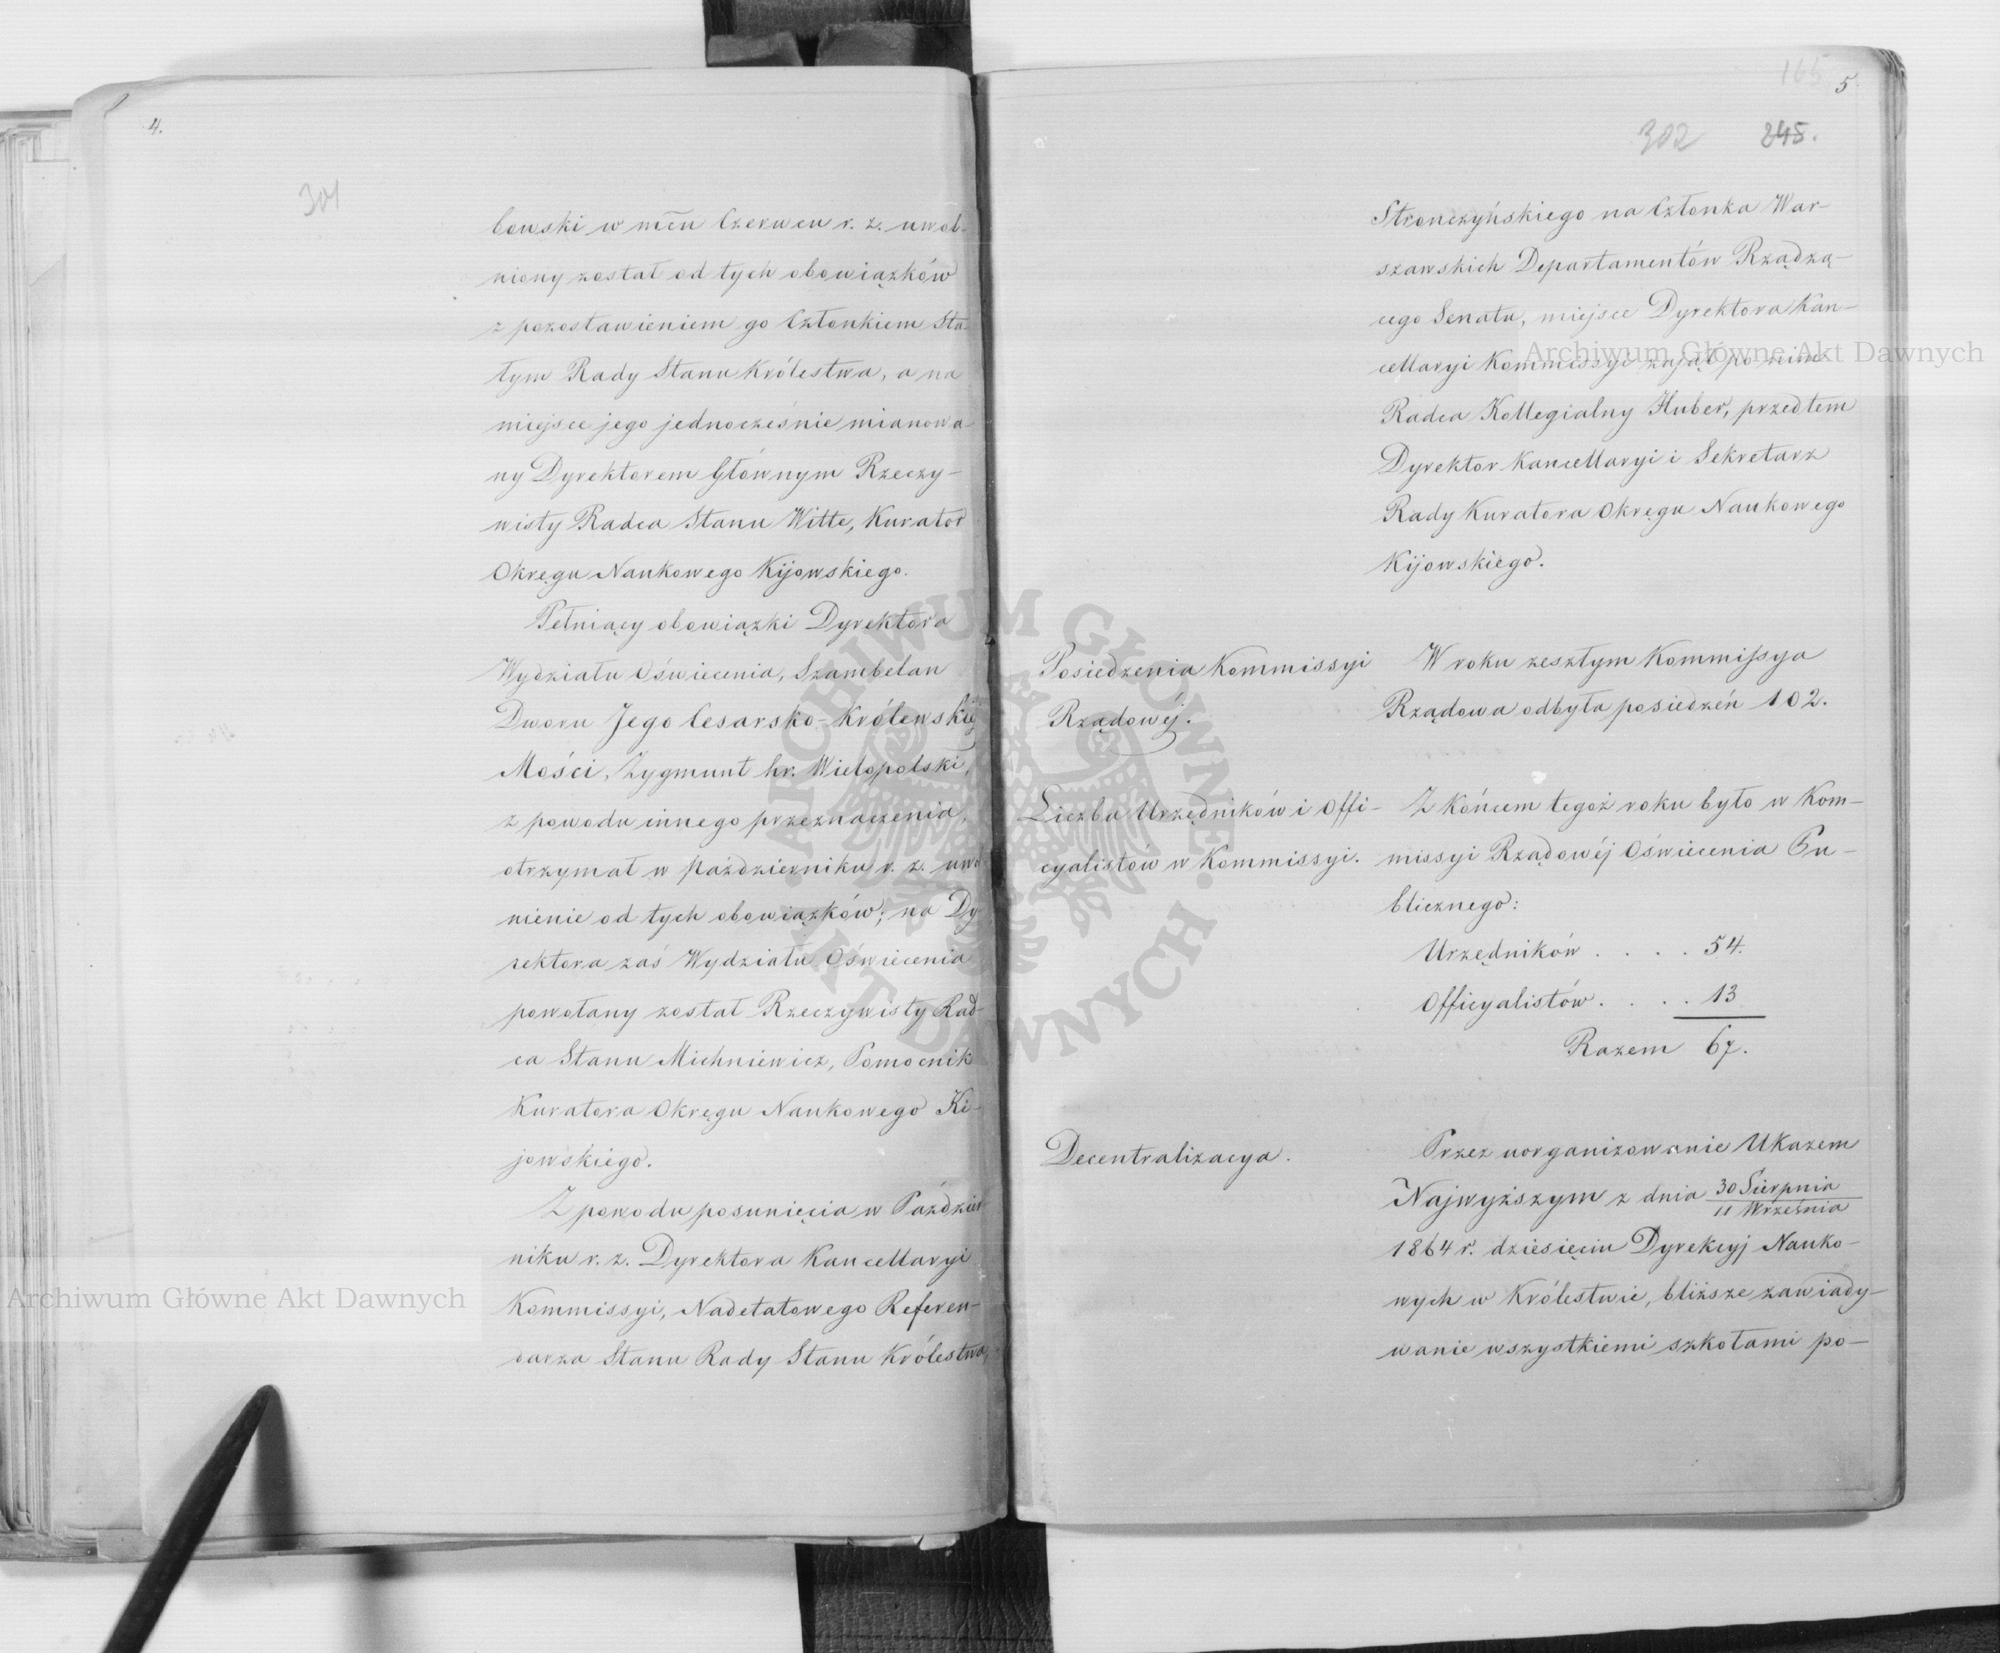 4.
301
bowski w mcu Czerwcu r. z. uwol-
niony został od tych obowiązków
z pozostawieniem go Członkiem Sta-
łym Rady Stanu Królestwa, a na
miejsce jego jednocześnie mianowa-
ny Dyrektorem Głównym Rzeczy-
wisty Radca Stanu Witte, Kurator
Okręgu Naukowego Kijowskiego.
Pełniący obowiązki Dyrektora
Wydziału Oświecenia, Szambelan
Dworu Jego Cesarsko-Królewskiéj
Mości, Zygmunt hr. Wielopolski,
z powodu innego przeznaczenia,
otrzymał w Październiku r. z. uwol-
nienie od tych obowiązków; na Dy-
rektora zaś Wydziału Oświecenia
powołany został Rzeczywisty Rad-
ca Stanu Michniewicz, Pomocnik
Kuratora Okręgu Naukowego Ki-
jowskiego.
Z powodu posunięcia w Paździer-
niku r. z. Dyrektora Kancellaryi
Kommissyi, Nadetatowego Referen-
darza Stanu Rady Stanu Królestwa,
165
5
302 245.
Stronczyńskiego na Członka War-
szawskich Departamentów Rządzą-
cego Senatu, miejsce Dyrektora Kan-
cellaryi Kommissyi zajął po nim
Radca Kollegialny Huber, przedtem
Dyrektor Kancellaryi i Sekretarz
Rady Kuratora Okręgu Naukowego
Kijowskiego.
Posiedzenia Kommissyi
Rządowéj.
W roku zeszłym Kommissya
Rządowa odbyła posiedzeń 102.
Liczba Urzędników i Offi-
cyalistów w Kommissyi.
Z końcem tegoż roku było w Kom-
missyi Rządowéj Oświecenia Pu-
blicznego:
Urzędników . . . . 54.
Officyalistów . . . . 13
Razem 67.
Decentralizacya.
Przez uorganizowanie Ukazem
Najwyższym z dnia 30 Sierpnia
11 Września
1864 r. dziesięciu Dyrekcyj Nauko-
wych w Królestwie, bliższe zawiady-
wanie wszystkiemi szkołami po-
Archiwum Główne Akt Dawnych
Archiwum Główne Akt Dawnych
ARCHIWUM GŁÓWNE AKT DAWNYCH